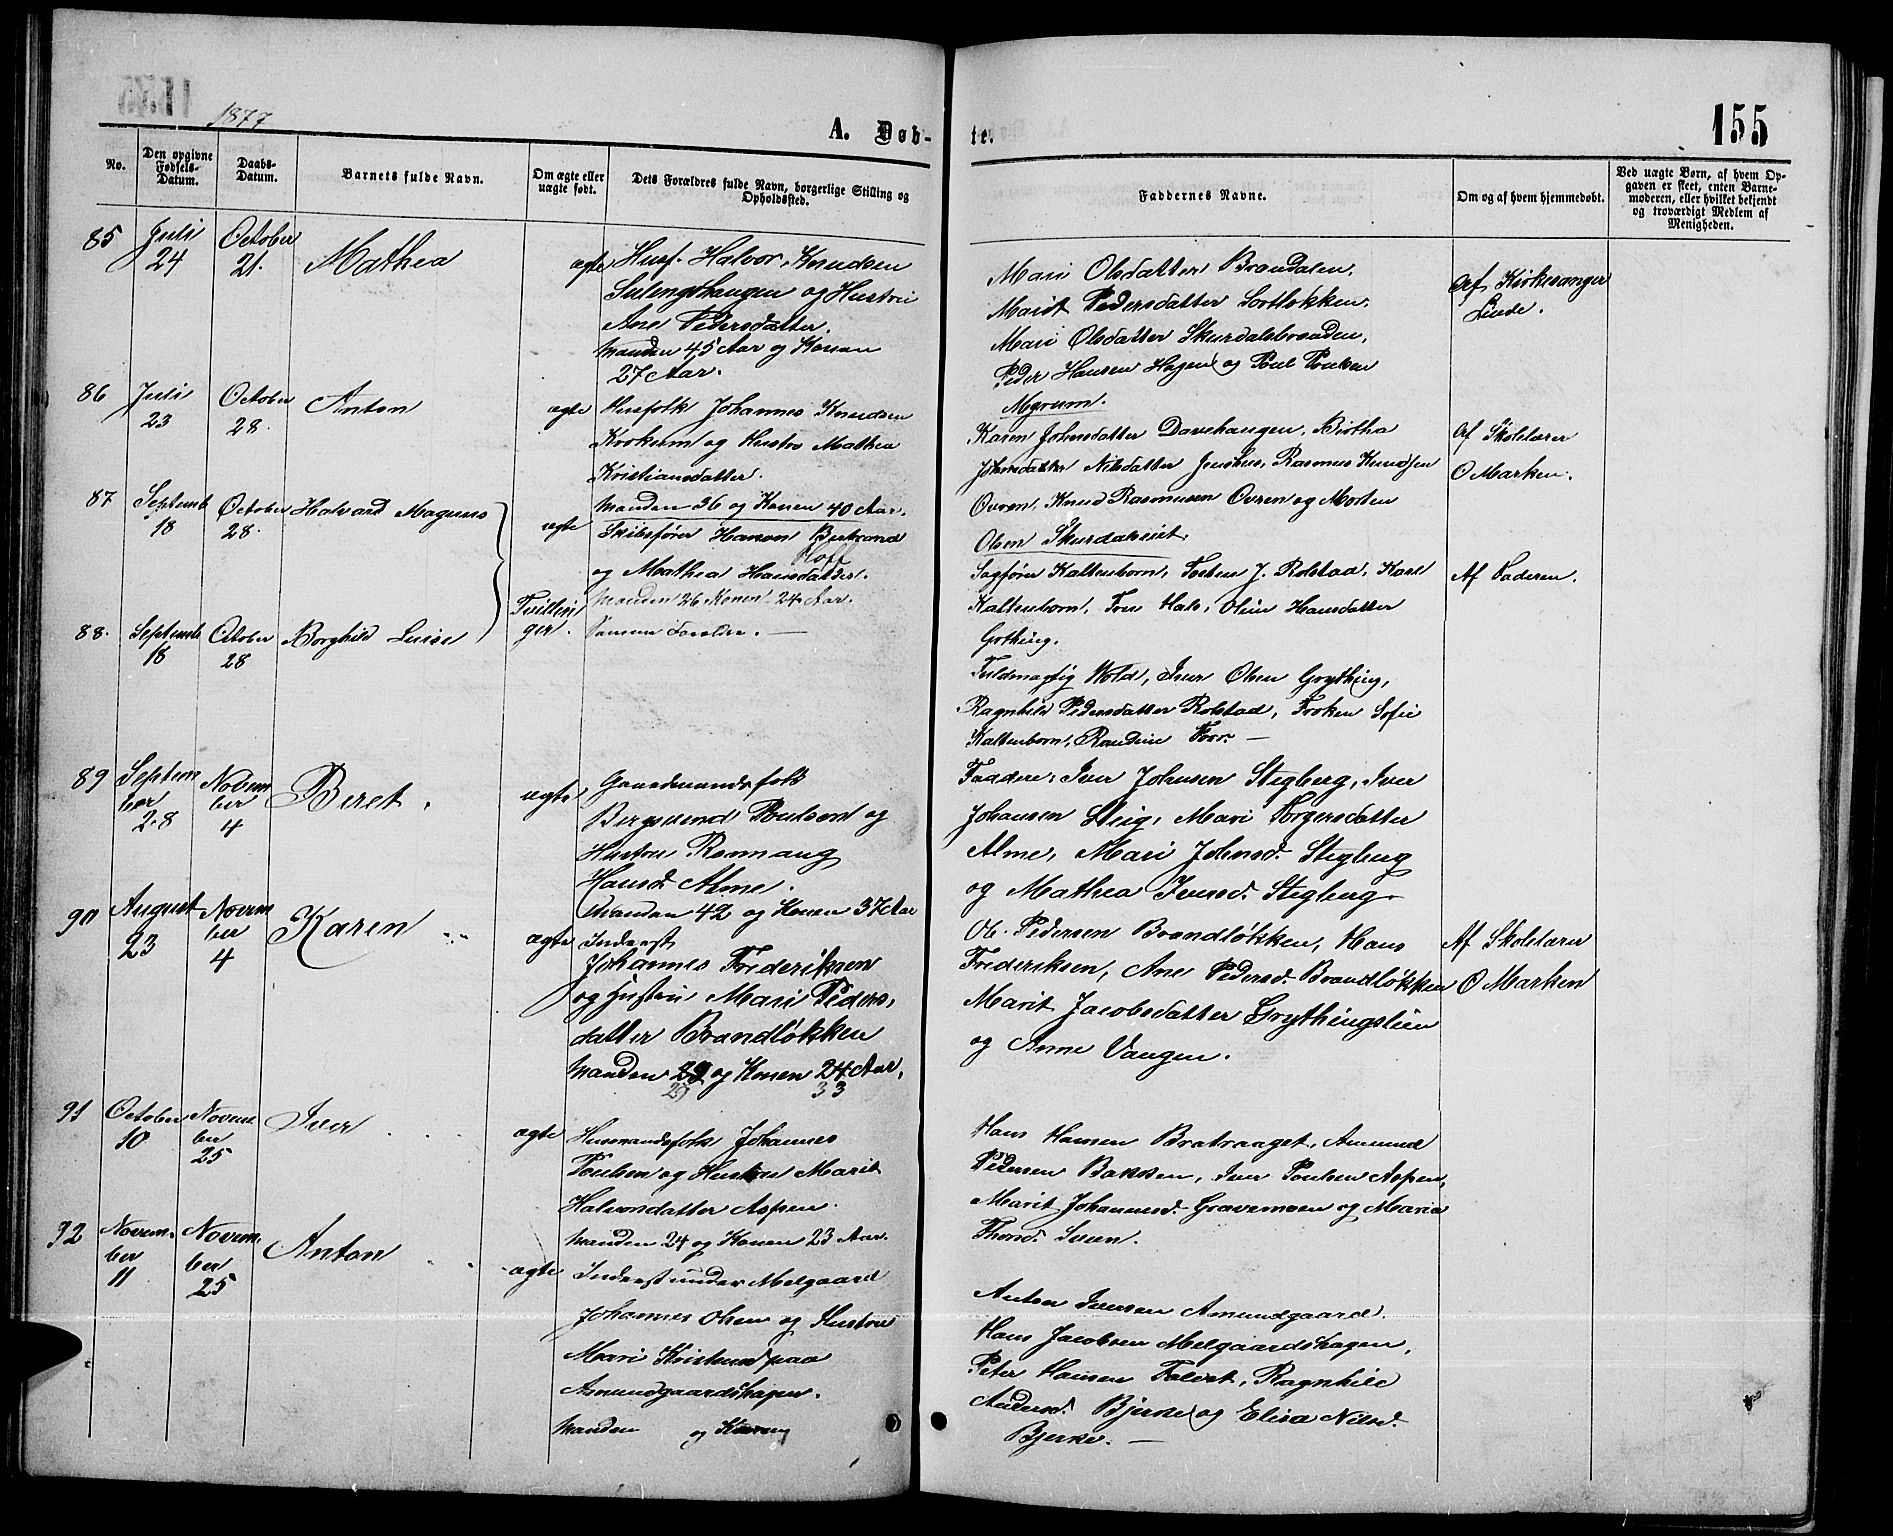 155
1877
A. Døb-
te.
No.
Den opgivne Fødsels-Datum.
Daabs-Datum.
Barnets fulde Navn.
Om ægte eller uægte født.
Dets Forældres fulde Navn, borgerlige Stilling og Opholdssted.
Faddernes Navne.
Om og af hvem hjemmedøbt.
Ved uægte Børn, af hvem Opgaven er skeet, enten Barnemoderen, eller hvilket bekjendt og troværdigt Medlem af Menigheden.
85
Juli 24
October 21.
Mathea
ægte
Husf. Halvor Knudsen
Sulengshaugen og Hustru
Ane Pedersdatter.
Manden 45 Aar og Konen
27 Aar.
Mari Olsdatter Brandalen,
Marit Pedersdatter Sortløkken,
Mari Olsdatter Skurdalsbranden,
Peder Hansen Hagen og Poul Poulsen
Myrum.
Af Kirkesanger
Linde.
86
Juli 23
October 28.
Anton
ægte
Husfolk Johannes Knudsen
Krokum og Hustro Mathea
Kristiansdatter.
Manden 36 og Konen 40 Aar.
Karen Johnsdatter Davehaugen, Birtha
Johnsdatter Nilsdatter Jenshus, Rasmus Knudsen
Øvren, Knud Rasmusen Øvren og Morten
Olsen Skurdalseiet.
Af Skolelærer
O Marken.
87
Septemb 18
October 28.
Halvard Magnus
ægte
Skibsfører Hanson Bertrand
Hoff
og Mathea Hansdatter.
Manden 26, Konen 24 Aar.
Sagfører Kaltenborn, Torsten J. Rolstad, Karl
Kaltenborn, Fru Hals, Oline Hansdatter
Grthing.
Af Faderen.
Tvillin-
ger.
88.
Septemb 18
October 28
Borghild Luise
Samme Forældre. —
Fuldmægtig Wold, Iver Olsen Grything,
Ragnhild Pedersdatter Rolstad, Frøken Sofie
Kaltenborn, Randine Forr. —
89
Septem
ber
28
Novem
ber
4
Beret.
ægte
Gaardmandsfolk
Bergsvend Poulsen og
Hustru Ronnaug
Hansd. Alme.
Manden 42 og Konen 37 Aar
Faddere: Iver Johnsen Stegberg, Iver
Johansen Steig, Mari Torgersdatter
Alme, Mari Johnsd. Stegberg
og Mathea Iversd. Stegberg.
90
August
23
Novem
ber
4
Karen
ægte
Inderst
Johannes Frederiksen
og Hustru Mari Peders-
datter Brandløkken
Manden 29 og Konen 24 Aar,
29 33
Ole Pedersen Brandløkken, Hans
Frederiksen, Ane Pedersd. Brandløkken
Marit Jacobsdatter Grythingslien
og Anne Vangen.
Af Skolelærer
O Marken
91
October
10
Novem
ber
25
Iver
ægte
Husmandsfolk Johannes
Poulsen og Hustru Marit
Halvorsdatter Aspen.
Manden 24 og Konen 23 Aar.
Hans Hansen Bratraaget, Amund
Pedersen Bakken, Iver Poulsen Aspen,
Marit Johannesd. Gravemoen og Maria
Thorsd. Sveen.
92
Novem-
ber
11
Novem
ber
25
Anton
ægte
Inderst under Melgaard
Johannes Olsen og Hustru
Mari Kristensd paa
Amundgaardshagen.
Manden og Konen
Anton Iversen Amundgaard,
Hans Jacobsen Melgaardshagen,
Peter Hansen Toldst, Ragnhild
Andersd. Bjerke og Elisa Nilsd.
Bjerke. —